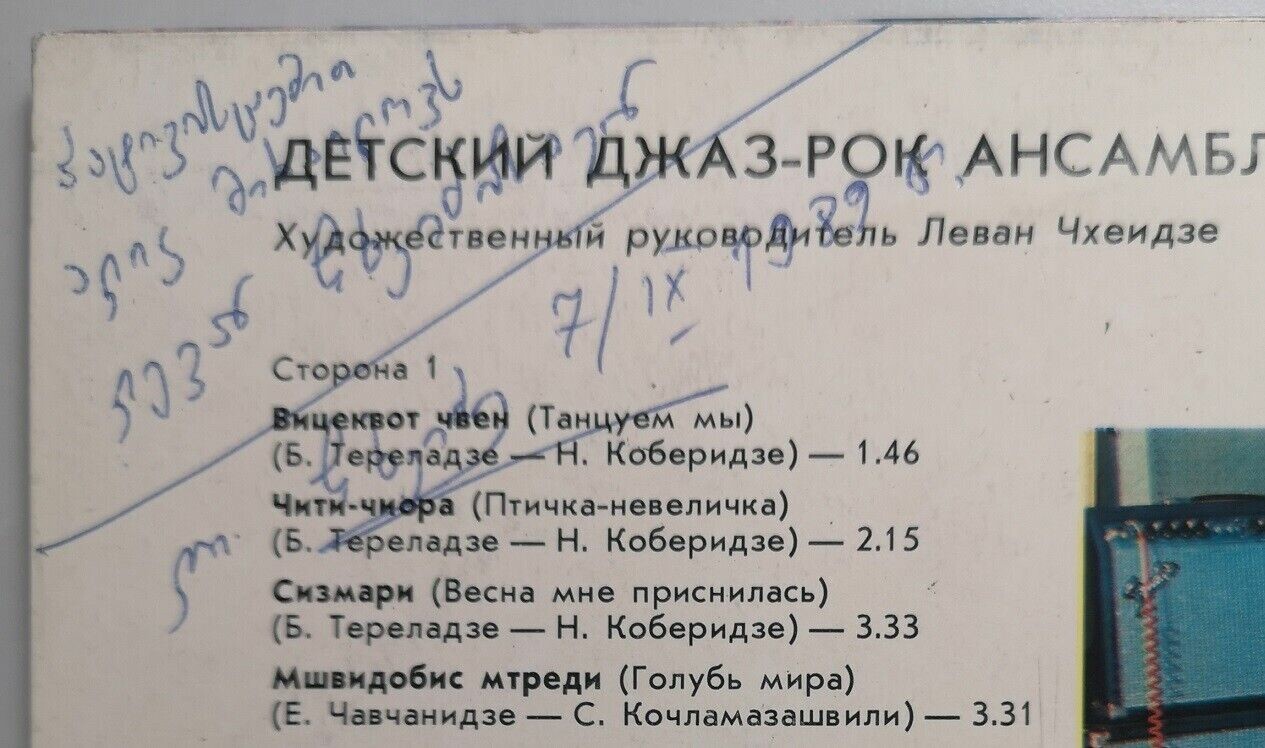 პატივისცემით
ДЕТСКИЙ ДЖАЗ-РОК АНСАМБЛ
Художественный руководитель Леван Чхеидзе
7/IX — 1989 წ.
Сторона 1
Вицеквот чвен (Танцуем мы)
(Б. Тереладзе — Н. Коберидзе) — 1.46
Чити-чиора (Птичка-невеличка)
(Б. Тереладзе — Н. Коберидзе) — 2.15
Сизмари (Весна мне приснилась)
(Б. Тереладзе — Н. Коберидзе) — 3.33
Мшвидобис мтреди (Голубь мира)
(Е. Чавчанидзе — С. Кочламазашвили) — 3.31